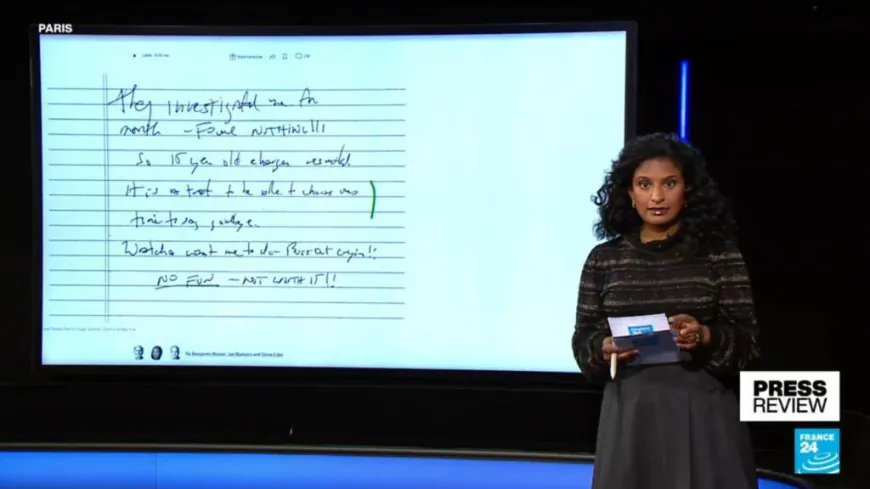 PARIS
They investigated me for
month – Found NOTHING!!!
So 15 year old charges resulted.
It is a treat to be able to choose ones
time to say goodbye.
Watcha want me to do – Bust out cryin!!
NO FUN – NOT WORTH IT!!
By Benjamin Weiser, Jan Ransom and Steve Eder
FRANCE 24
PRESS
REVIEW
FRANCE
24